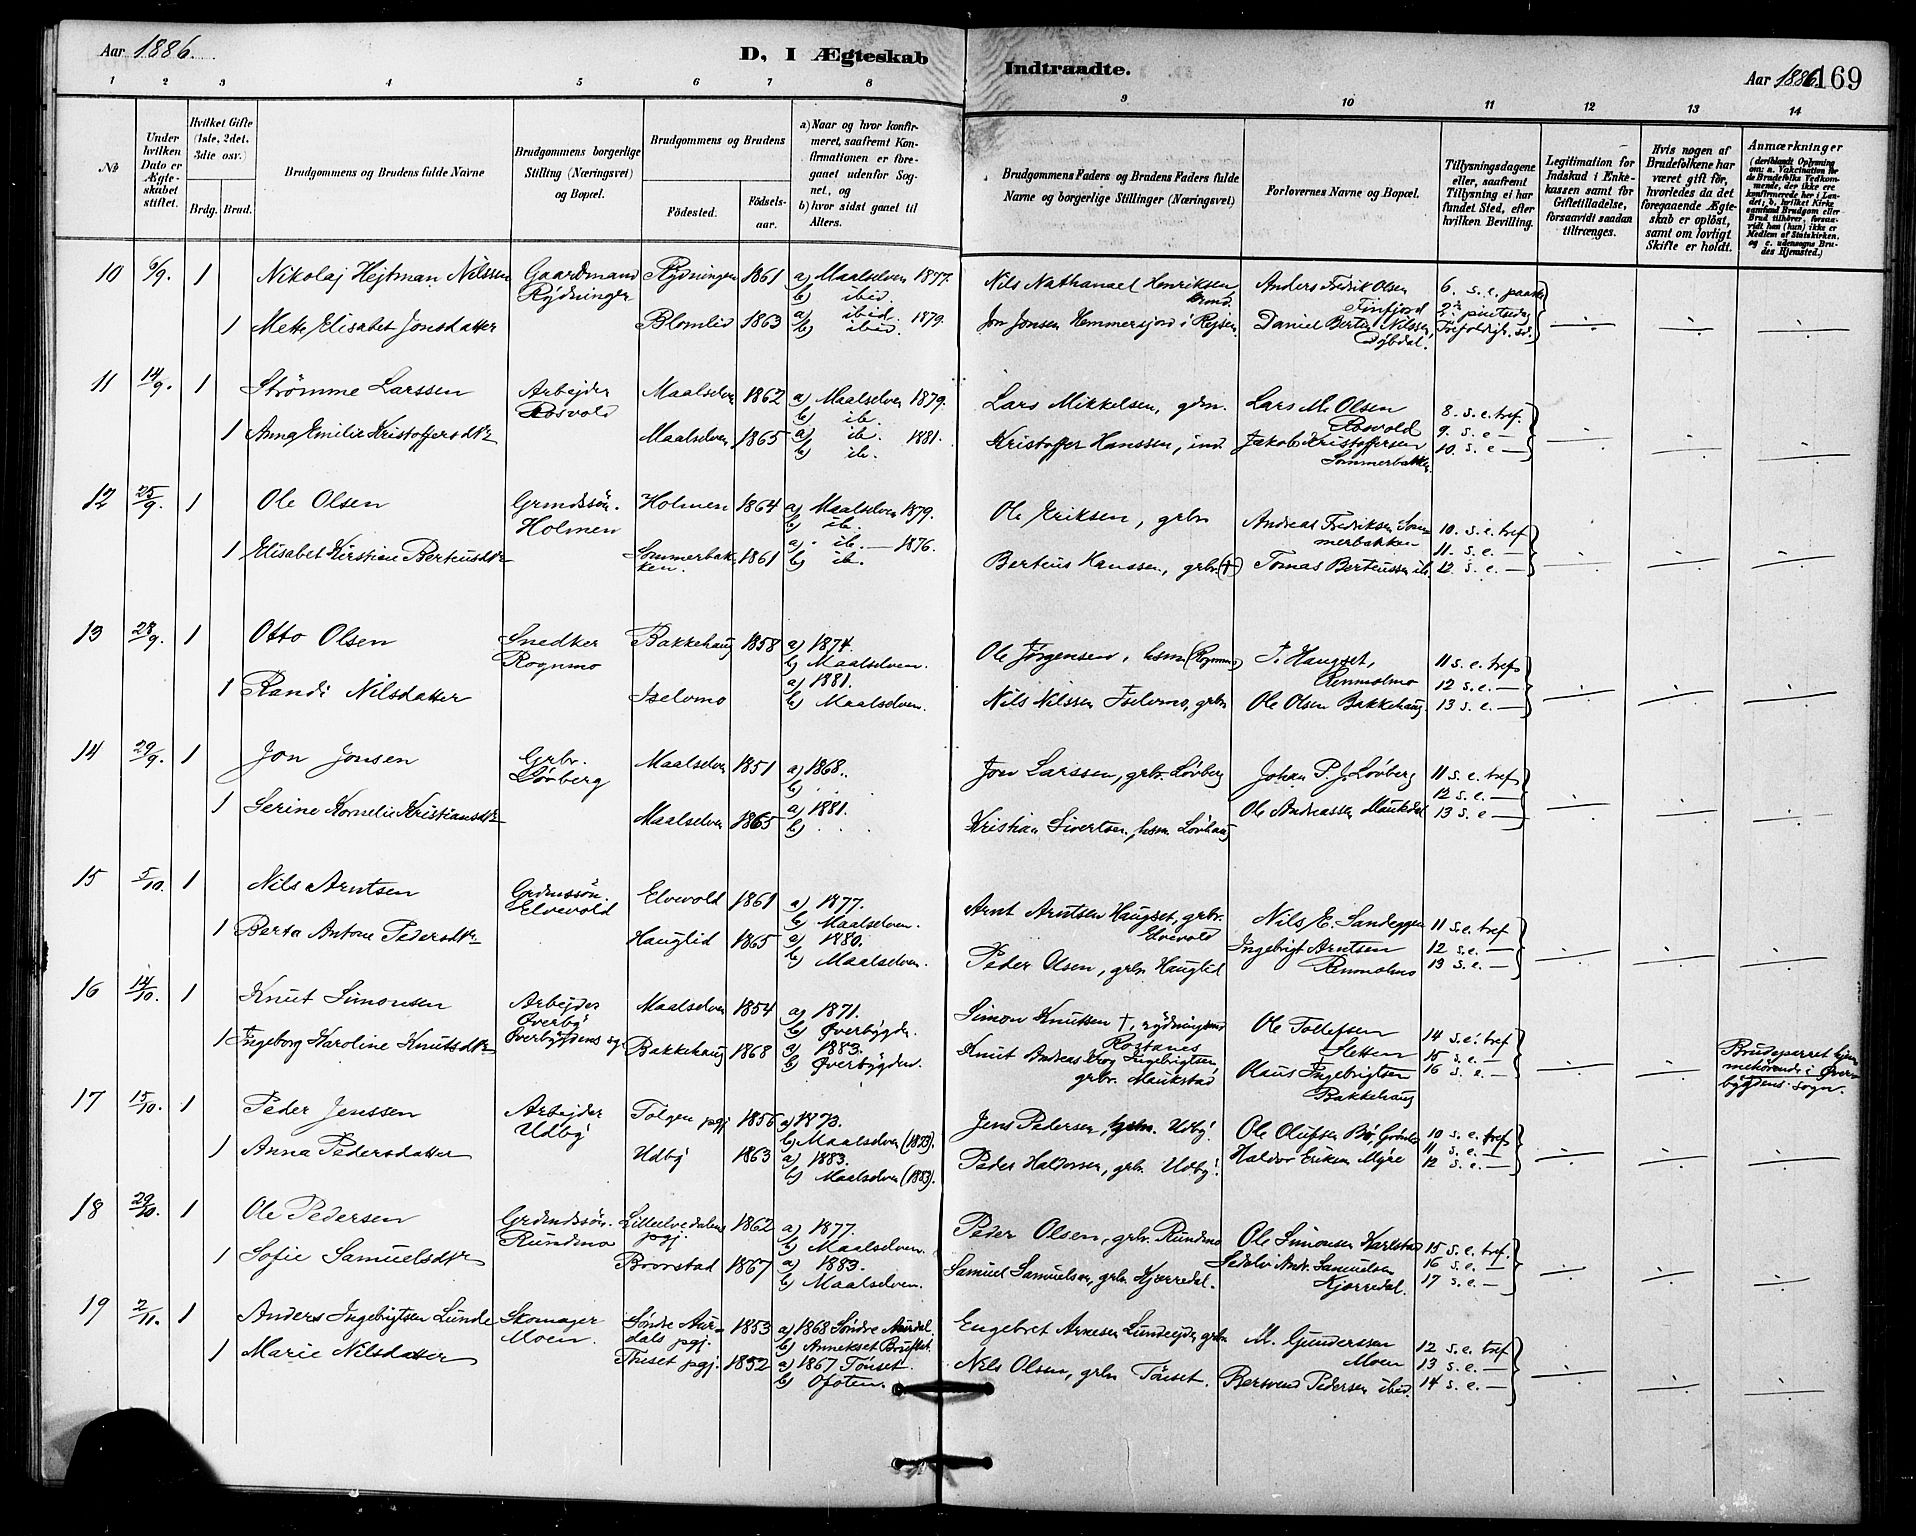 Aar 1886.
D, I Ægteskab Indtraadte.
Aar 1886. 169
1 2 3 4 5 6 7 8 9 10 11 12 13 14
No
Under hvilken Dato er Ægteskabet stiftet.
Hvilket Gifte (1ste, 2det, 3die osv.)
Brdg. Brud.
Brudgommens og Brudens fulde Navne
Brudgommens borgerlige Stilling (Næringsvei) og Bopæl.
Brudgommens og Brudens
Fødested.
Fødselsaar.
a) Naar og hvor konfirmeret, saafremt Konfirmationen er foregaaet udenfor Sognet, og
b) hvor sidst gaaet til Alters.
Brudgommens Faders og Brudens Faders fulde Navne og borgerlige Stillinger (Næringsvei)
Forlovernes Navne og Bopæl.
Tillysningsdagene eller, saafremt Tillysning ei har fundet Sted, efter hvilken Bevilling.
Legitimation for Indskud i Enkekassen samt for Giftetilladelse, forsaavidt saadan tiltrænges.
Hvis nogen af Brudefolkene har været gift før, hvorledes da det foregaaende Ægteskab er opløst, samt om lovligt Skifte er holdt.
Anmærkninger
10 6/9. 1 Nikolaj Hejtman Nilssen Gaardmand Rydninger Rydningen 1861 a) Maalselven 1877. b) ibid. Nils Nathanael Henriksen Anders Fredrik Olsen Finfjord 6. s. e. paaske
1 Mette Elisabet Jonsdatter Blomlid 1863 a) ibid. 1879. b) ibid. Jon Jonsen Hemmersjord i Rejsen Daniel Berten Nilssen
11 14/9. 1 Strømme Larssen Arbejder Rosvold Maalselven 1862 a) Maalselven 1879. b) ib. Lars Mikkelsen, gdm. Lars M. Olsen Rosvold 8. s. e. tref.
1 Anna Emilie Kristoffersdtr Maalselven 1865 a) ib. 1881. b) ib. Kristoffer Hanssen, ind. Jakob Kristoffersen Sommerbakken 9. s. e — 10. s. e —
12 25/9. 1 Ole Olsen Grmdssøn. Holmen Holmen 1864 a) Maalselven 1879. b) ib. Ole Eriksen, grbr Andreas Fredriksen Sommerbakken 10. s. e. tref
1 Elisabet Kirstine Berteusdtr Sommerbakken. 1861 a) ib. — 1876. b) ib. Berteus Hanssen, grbr. (+) Tomas Berteussen ib. 11. s. e. — 12. s. e. —
13 28/9. 1 Otto Olsen Snedker Rognmo Bakkehaug 1858 a) 1874. b) Maalselven. Ole Jørgensen, hsm (Rognmo) T. Haugset, Renmolmo 11 s. e. tref
1 Randi Nilsdatter Iselvmo a) 1881. b) Maalselven. Nils Nilssen Iselvmo, grbr Ole Olsen Bakkehaug. 12 s. e. — 13 s. e. —
14 29/9. 1 Jon Jonsen Grbr. Løvberg Maalselven 1851 a) 1868. b) Jon Larssen, grbr. Løvberg Johan P. J. Løvberg 11 s. e. tref
1 Serine Kornelie Kristiansdtr Maalselven 1865 a) 1881. b) Kristian Sivertsen, hsm. Løvhaug Ole Andreassen Maukdal 12 s. e. — 13 s. e —
15 5/10. 1 Nils Arntsen Grdmssøn. Elvevold Elvevold 1861 a) 1877. b) Maalselven. Arnt Arntsen Haugset, grbr. Elvevold Nils E. Sandeggen 11 s. e. tref
1 Berta Antone Pedersdtr Hauglid 1865 a) 1880. b) Maalselven. Peder Olsen, grbr. Hauglid Ingebrigt Arntsen Renmolmo 12 s. e. — 13 s. e. —
16 14/10. 1 Knut Simonsen Arbejder Øverby Øverbygdens sg. Maalselven 1854 a) 1871. b) Øverbygden. Simon Knutsen †, rydningsmd Rostanes Ole Tollefsen Sletten 14 s. e. tref
1 Ingeborg Karoline Knutsdtr Bakkehaug 1868 a) 1883. b) Øverbygden. Knut Andreas Skog Ingebrigtsen, grbr. Maukstad Olaus Ingebrigtsen Bakkehaug 15 s. e. — 16 s. e. — Brudeparret hjemmehørende i Øverbygdens sogn.
17 15/10. 1 Peder Jenssen Arbejder Udby Tolgen pgj. 1856 a) 1873. b) Maalselven (1873). Jens Pedersen, hsm. Udby. Ole Olufsen Bø, 10 s. e. tref
1 Anna Pedersdatter Udby 1863 a) 1883. b) Maalselven (1883). Peder Haldorsen, grbr. Udby. Haldor Eriksen Myre 11 s. e. — 12 s. e. —
18 29/10. 1 Ole Pedersen Grdmdssøn. Rundmo Lilleelvedalens pgj. 1862 a) 1877. b) Maalselven. Peder Olsen, grbr. Rundmo Ole Simonsen Karlstad 15 s. e. tref.
1 Sofie Samuelsdtr Brorstad 1867 a) 1883. b) Maalselven. Samuel Samuelsen, grbr. Kjerredal. Andr. Samuelsen Kjerredal 16 s. e. — 17 s. e. —
19 2/11. 1 Anders Ingebrigtsen Lunde Skomager Moen. Søndre Aurdals pgj. 1853 a) 1868 Søndre Aurdal. b) Annekset Engebret Arnesen Lundeejde grbr M. Gunderssen Moen 12 s. e. tref
1 Marie Nilsdatter Tønset pgj. 1852 a) 1867 Tønset. b) Ofoten. Nils Olsen, grbr Tønset. Bersvend Pedersen ibid. 13 s. e. — 14 s. e. —